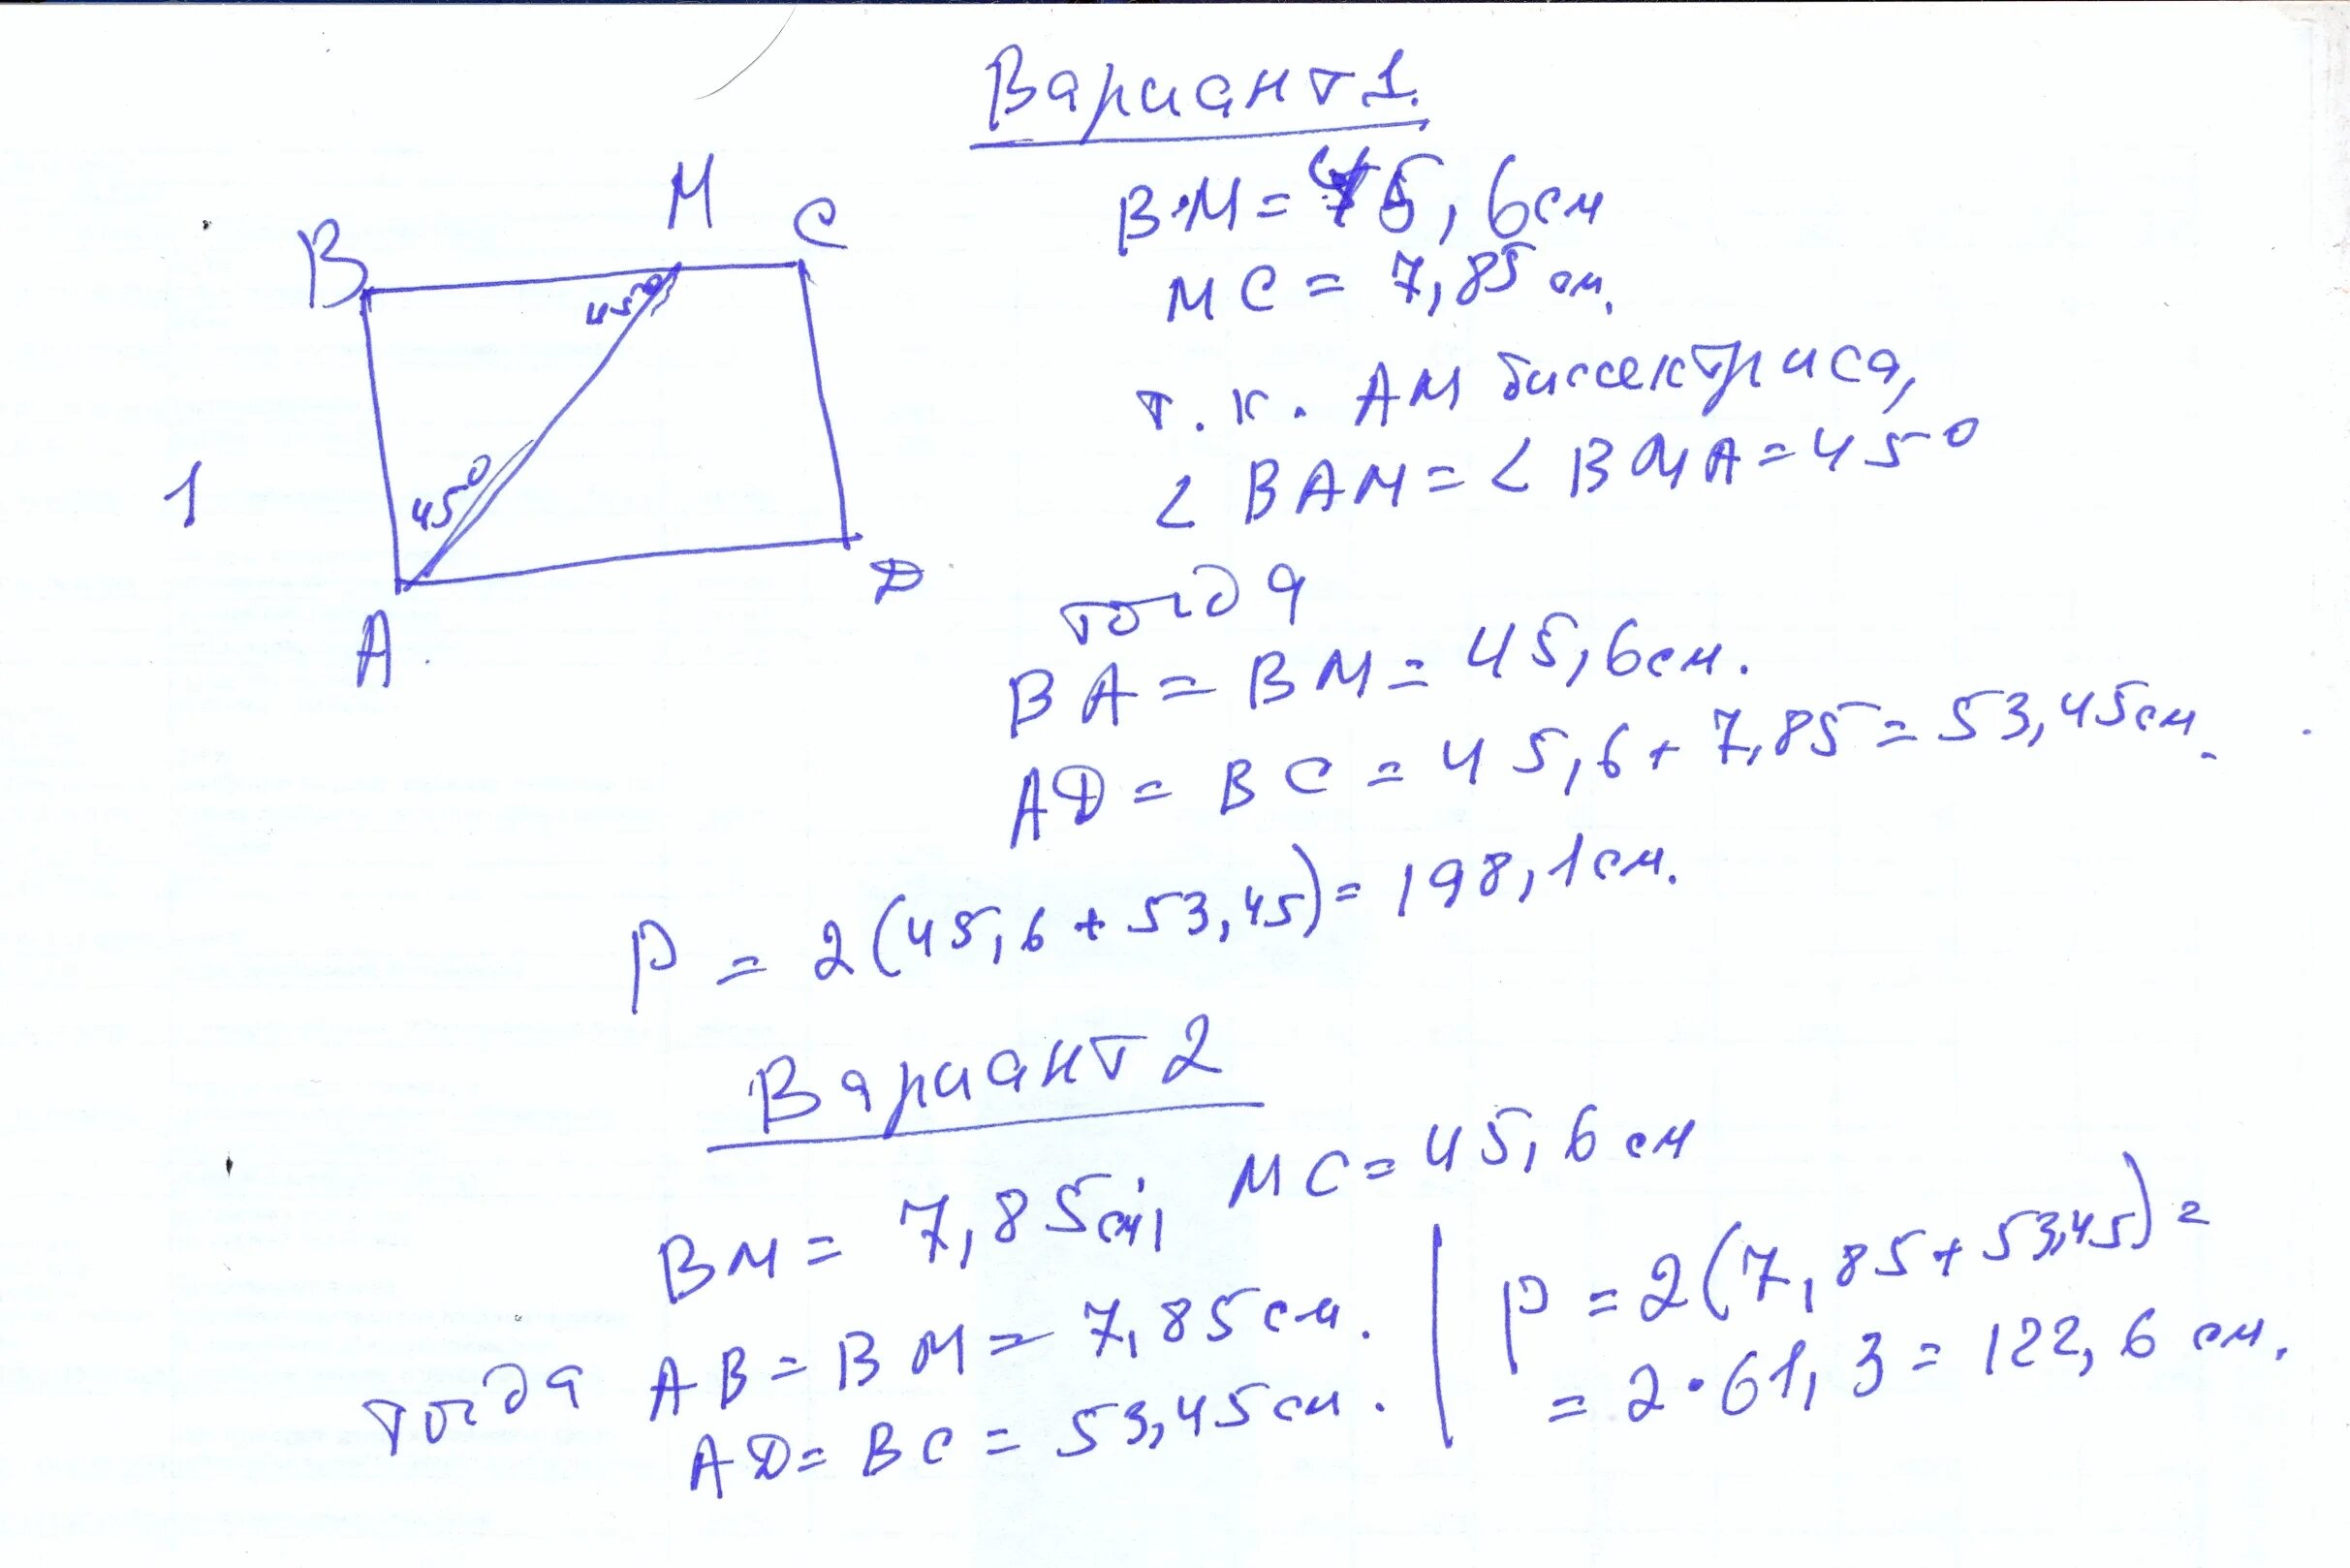 Вариант 1.
M
C
B
45°
45°
1
A
D
BM = 45,6 см
MC = 7,85 см.
т.к. AM биссектриса,
∠ BAM = ∠ BMA = 45°
тогда
BA = BM = 45,6 см.
AD = BC = 45,6 + 7,85 = 53,45 см.
P = 2(45,6 + 53,45) = 198,1 см.
Вариант 2
BM = 7,85 см, MC = 45,6 см
тогда AB = BM = 7,85 см.
AD = BC = 53,45 см.
P = 2(7,85 + 53,45) =
= 2 · 61,3 = 122,6 см.